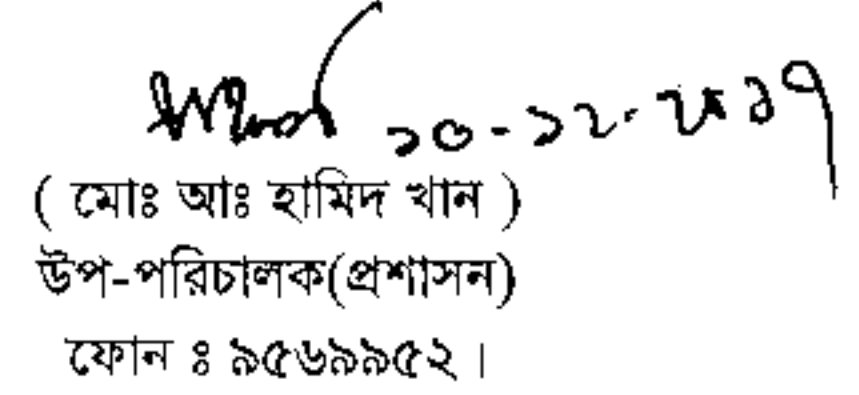 ১০-১২-২০১৭
( মোঃ আঃ হামিদ খান )
উপ-পরিচালক(প্রশাসন)
ফোন ঃ ৯৫৬৯৯৫২ ।